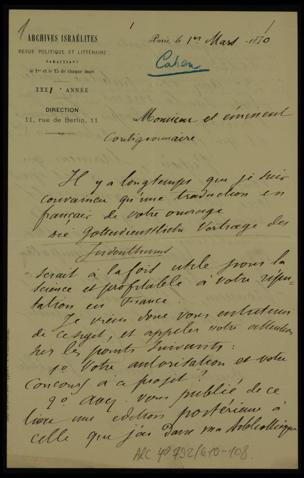 ARCHIVES ISRAÉLITES
REVUE POLITIQUE ET LITTÉRAIRE
PARAISSANT
le 1er et le 15 de chaque mois
XXXIe ANNÉE
DIRECTION
11, rue de Berlin, 11
Paris, le 1er Mars 1870
Cahen
Monsieur et éminent
Coreligionnaire
Il y a longtemps que je suis
convaincu qu'une traduction en
français de votre ouvrage
die Gottesdienstlichen Vorträge der
Judenthums
serait à la fois utile pour la
science et profitable à votre répu-
tation en France
Je viens donc vous entretenir
de ce sujet, et appeler votre attention
sur les points suivants:
1o Votre autorisation et votre
Concours à ce projet?
2o avez vous publié de ce
livre une édition postérieure à
celle que j'ai dans ma bibliothèque
ARC 4o 792/G10-108